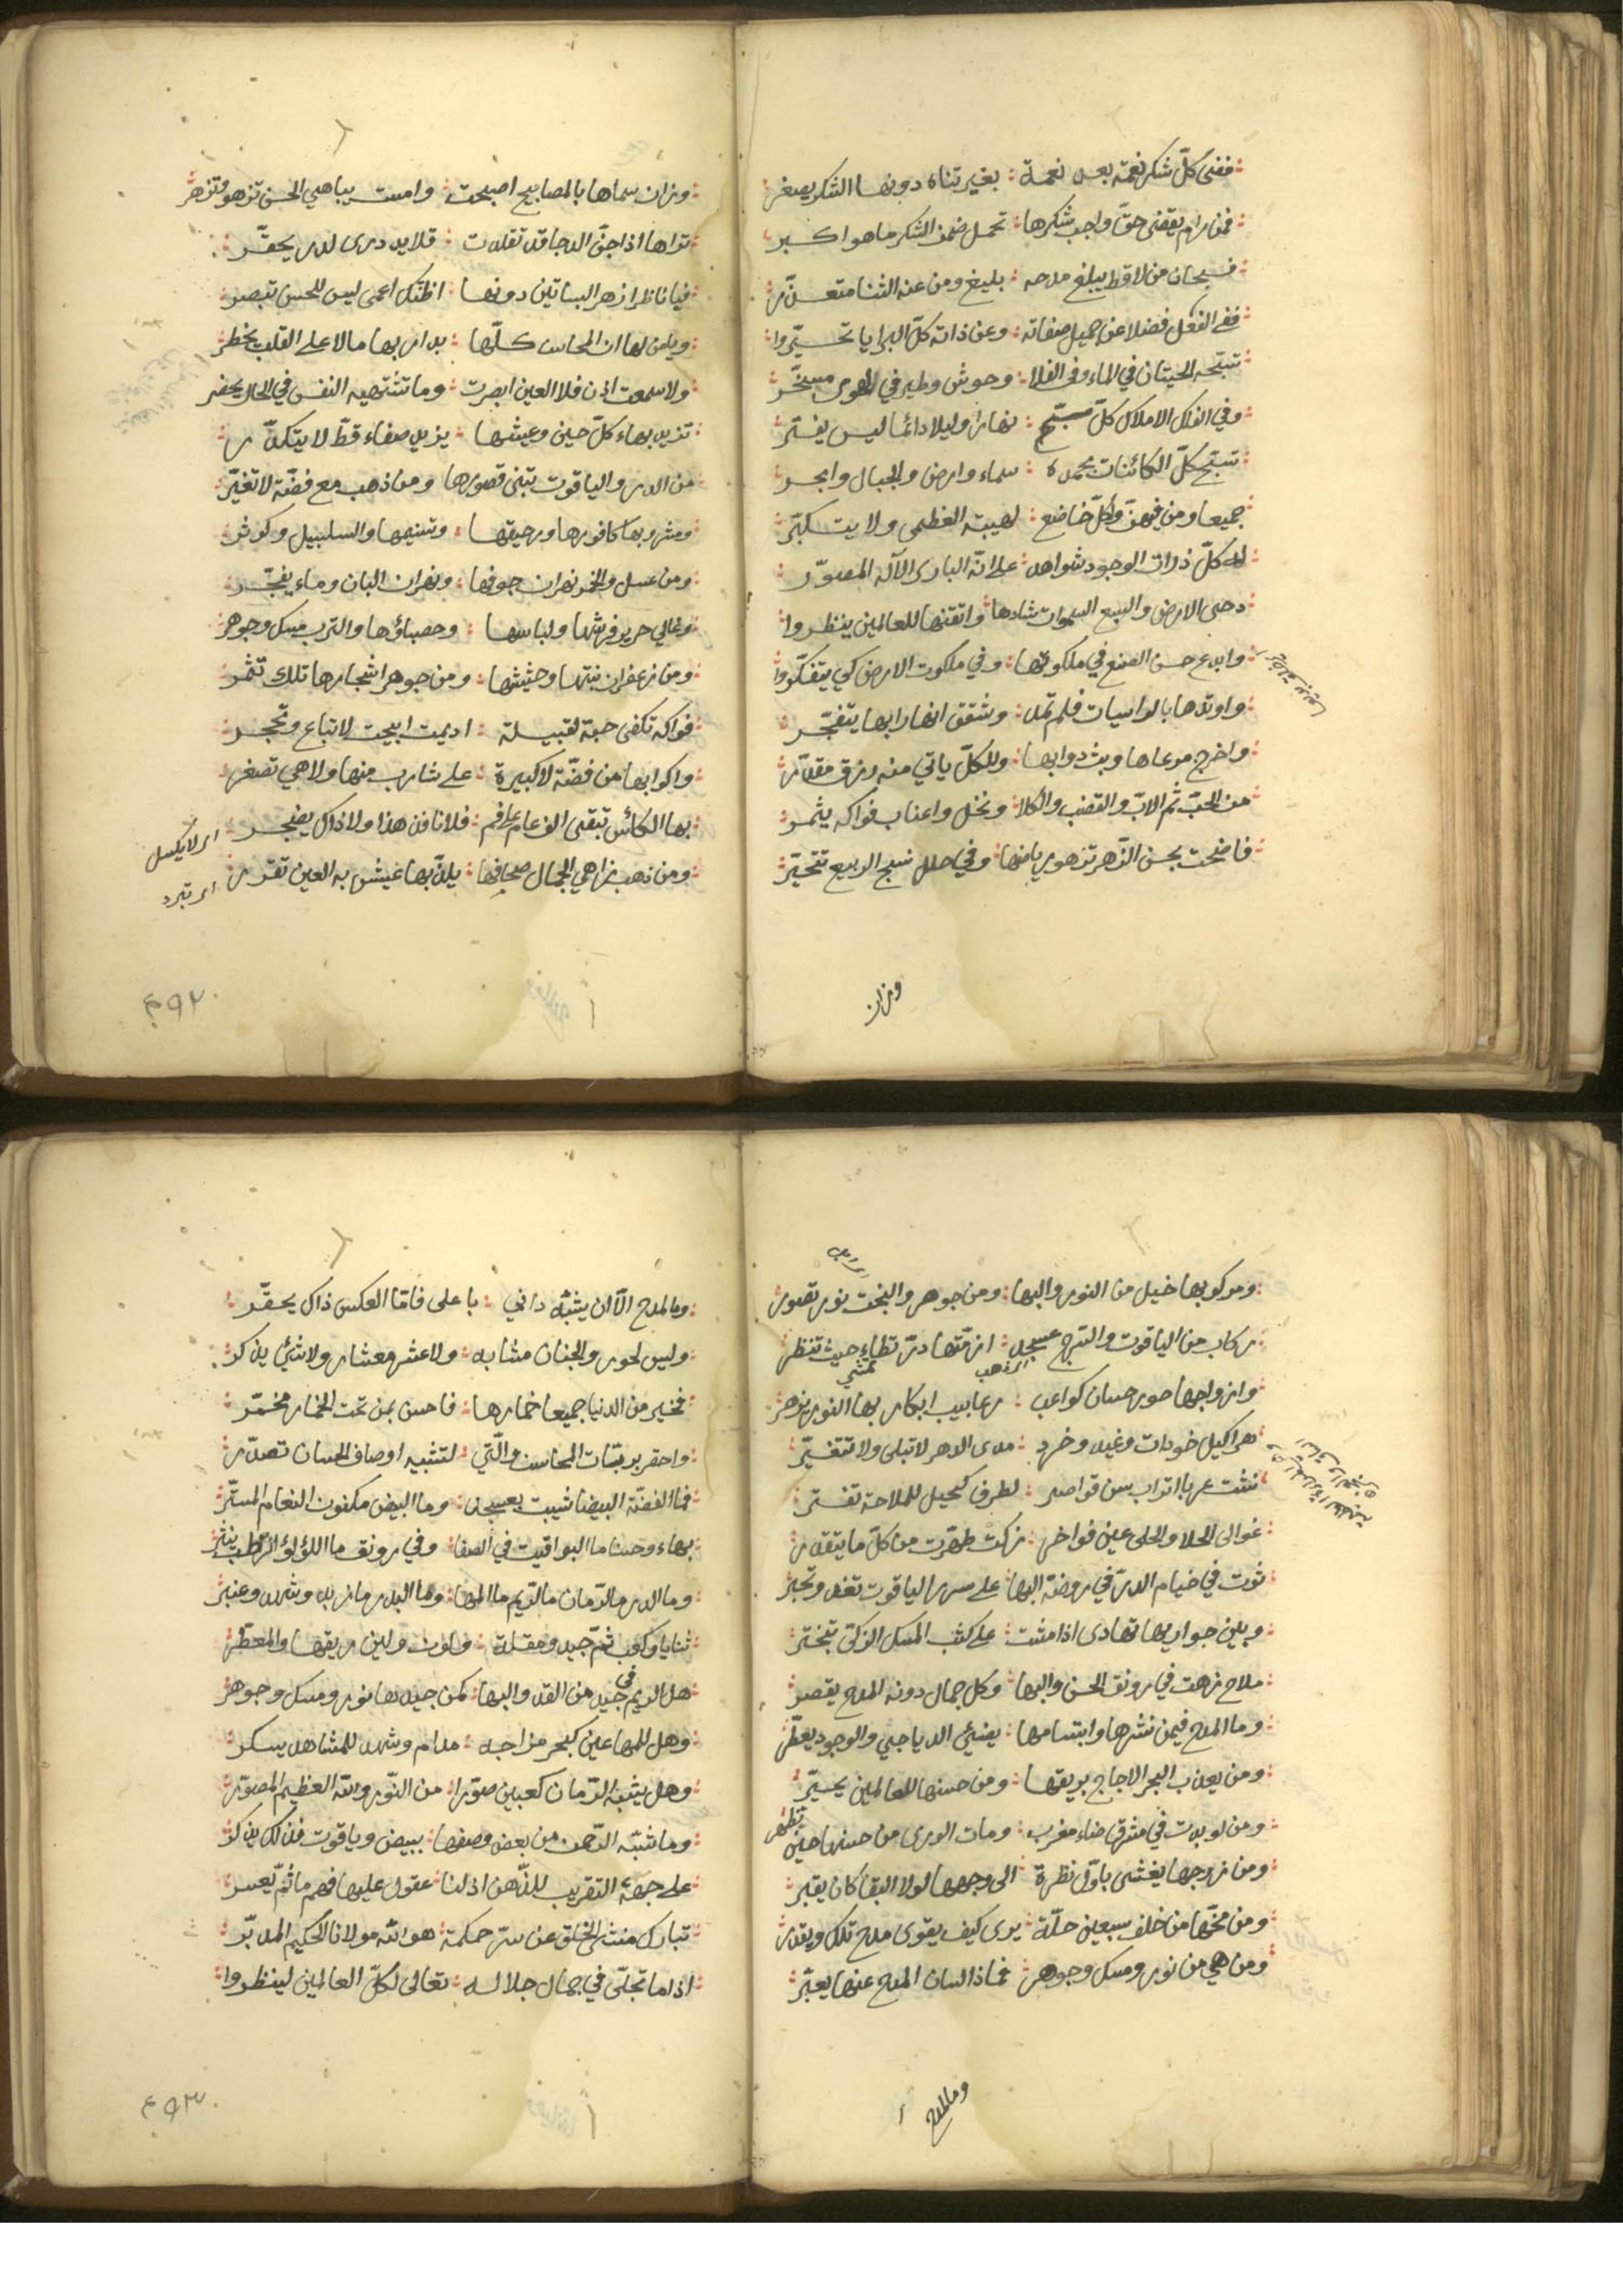 ففى كلّ شكر نعمة بعد نعمة : بغير تناه دونها الشكر يصغر
فمن رام يقضى حقّ واجب شكرها : تحمل ضمن الشكر ما هو اكبر
فسبحان من لا قط يبلغ مدحه : بليغ ومن عنه الثنا متعذّر
ففى الفعل فضلا عن جميل صفاته : وعن ذاته كلّ البرايا تحيّروا
تسبّحه الحيتان في الماء وفى الفلا : وحوش وطير في الهوى مسخّر
وفي الفلك الاملاك كلّ مسبّح : نهارا وليلا دائما ليس يفتر
تسبّح كلّ الكائنات بحمده : سماء وارض والجبال وابحر
جميعا ومن فيهنّ وكلّ خاضع : لهيبته العظمى ولا يتكبّر
له كلّ ذرات الوجود شواهد : على انّه البارى الآله المصوّر
دحى الارض والسبع السموات شادها : واتقنها للعالمين ينظروا
وابدع حسن الصنع في ملكوتها : وفي ملكوت الارض كي يتفكّروا
واوتدها بالراسيات فلم تمد : وشقق انهارا بها يتفجّر
واخرج مرعاها وبث دوابها : وللكلّ ياتي منه رزق مقدّر
من الحبّ ثم الابّ والقضب والكلا : ونخل واعناب فواكه يثمر
فاضحت بحسن الزّهر تزهو رياضها : وفي حلل نسج الربيع تتحيّر
وزان
وزان سماها بالمصابيح اصبحت : وامست يباهي الحسن تزهو وتزهر
تراها اذا جنّ الدجا قد تقلدت : قلايد درى لدر يحقّر
فيا ناظرا زهر البساتين دونها : اظنّك اعمى ليس للحسن تبصر
ويا من لها ان المحاسن كلّها : بدار بها ما لا على القلب يخطر
ولا سمعت اذن فلا العين ابصرت : وما تشتهيه النفس في الحال يحضر
تزيد بهاء كلّ حين وعيشها : يزيد صفاء قطّ لا يتكدّر
من الدر والياقوت تبنى قصورها : ومن ذهب مع فضّة لا تغيّر
ومشروبها كافورها ورحيقها : وتسنيمها والسلسبيل وكوثر
ومن عسل والخمر نهران جوفها : ونهران البان وماء يفجّر
وغالي حرير فرشها ولباسها : وحصباؤها والترب مسك وجوهر
ومن زعفران نبتها وحشيشها : ومن جوهر اشجارها تلك تثمر
فواكه تكفى حبة لقبيلة : اديمت ابيحت لاتباع وتحجر
واكوابها من فضّة لا كبيرة : على شارب منها ولا هي تصغر
بها الكأس تبقى الف عام على فم : فلا نافذ هذا ولا ذاك يضجر اى لا يكسل
ومن ذهب زاهي الجمال صحافها : يلذّ بها عيش به العين تقرر اى تبرد
٠٣٩٢
ومركوبها خيل من النور والبها : ومن جوهر والبخت نور تصور
ركاب من الياقوت والسّرج عسجد : ازمّتها درّ تطاء حيث تنظر
اى ذهب تمشي
وازواجها حور حسان كواعب : رعابيب ابكار بها النور يزهر
هراكيل خودات وغيد وخرد : مدى الدهر لا تبلى ولا تتغيّر
نشت عربا اتراب سن قواصر : لطرف كحيل للملاحة تفتر
غوالى الحلا والحلى عين فواخر : زكت طهّرت من كلّ ما يتقذر
ثوت في خيام الدرّ في روضة البها : على سرر الياقوت تغدو وتحبر
وبين جواريها تهادى اذا مشت : على كثب المسك الزكى تبختر
ملاح زهت في رونق الحسن والبها : وكل جمال دونه المدح يقصر
وما المدح فيمن نشرها وابتسامها : يضيئ الدياجي والوجود يعطّر
ومن يعذب البحر الاجاج بريقها : ومن حسنها للعالمين يحيّر
ومن لو بدت في مشرق ضاء مغرب : ومات الورى من حسنها حين تظهر
ومن زوجها يغشى باوّل نظرة : الى وجهها لولا البقا كان يقبر
ومن مخّها من خلف سبعين حلّة : يرى كيف يقوى مدح تلك ويقدر
ومن هي من نور ومسك وجوهر : فماذا لسان المدح عنها يعبّر
وما المدح
وما المدح الّا ان يشبّه داني : باعلى فامّا العكس ذاك يحقّر
وليس لحور والجنان مشابه : ولا عشر معشار ولا شئ يذكر
فخير من الدنيا جميعا خمارها : فاحسن بمن تحت الخمار مخمّر
واحقر بربّات المحاسن والّتي : لتشبيه اوصاف الحسان تصدّر
فما الفضّة البيضا شيبت بعسجد : وما البيض مكنون النعام المستّر
بهاء وحسنا ما اليواقيت في الصفا : وفي رونق ما اللؤلؤ الرّطب ينثر
وما الدر ما الرّمان ما الريم ما المها : وما البدر ما زبد وشهد وعنبر
ثنايا وكعب ثمّ جيد ومقلة : ولون ولين ريقها والمعطّر
هل الريم في جيد من القد والبها : كمن جيدها نور ومسك وجوهر
وهل للمها عين كبحر مزاجه : مدام وشهد للمشاهد يسكر
وهل يشبه الرّمان كعبين صوّرا : من النّور والله العظيم المصوّر
وما شبّه الرّحمن من بعض وصفها : ببيض وياقوت فذلك يذكر
على جهة التقريب للذّهن اذ لنا : عقول عليها فهم ما ثمّ يعسر
تبارك منشى الخلق عن سرّ حكمة : هو الله مولانا الحكيم المدبّر
اذا ما تجلّى في جمال جلاله : تعالى لكلّ العالمين لينظروا
٠٣٩٣